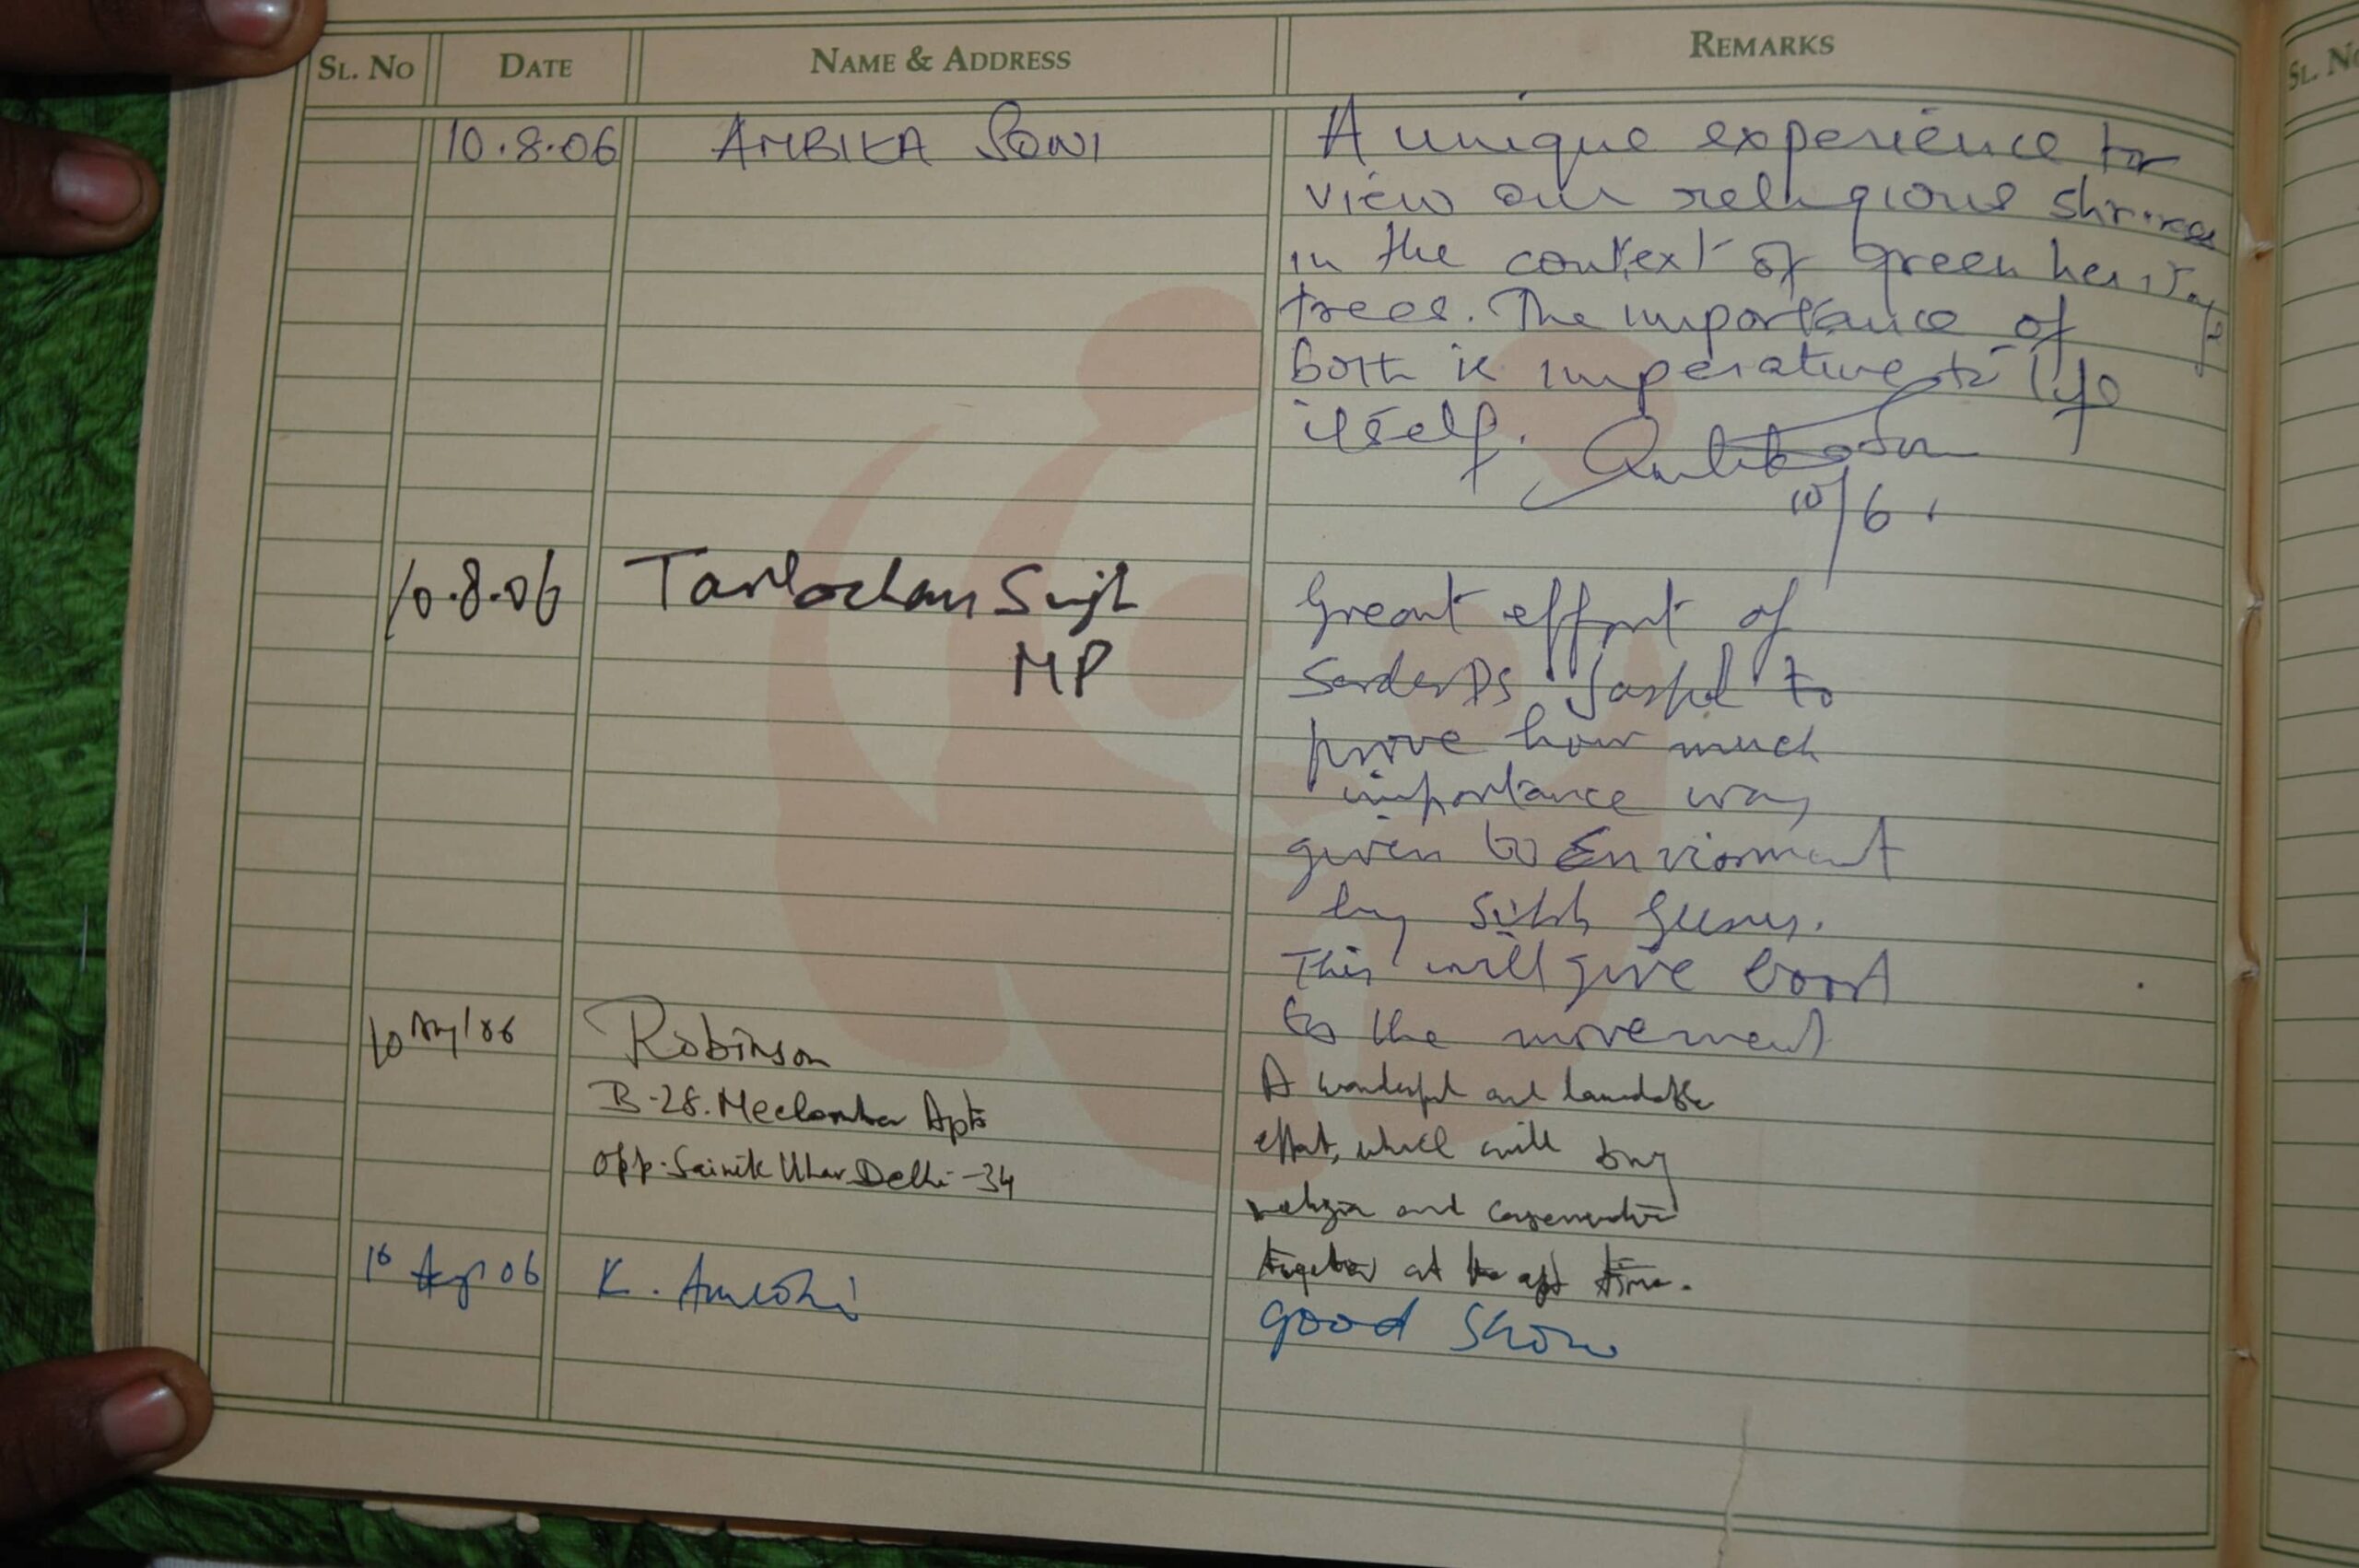 SL. NO DATE NAME & ADDRESS REMARKS
SL. NO
10.8.06 AMBIKA SONI A unique experience to
view our religious shrines
in the context of green heritage
trees. The importance of
both is imperative to life
itself.
10/6
10.8.06 Tarlochan Singh
MP
Great effort of
Sardar DS Jaspal to
prove how much
importance was
given to Enviornment
by Sikh Gurus.
This will give boost
to the movement
10 Aug/06 Robinson
B-28. Meelomba Apts
Opp. Sainik Vihar Delhi-34
A wonderful and laudable
effort, which will bring
religion and conservation
together at the apt time.
10 Aug 06 K. good show